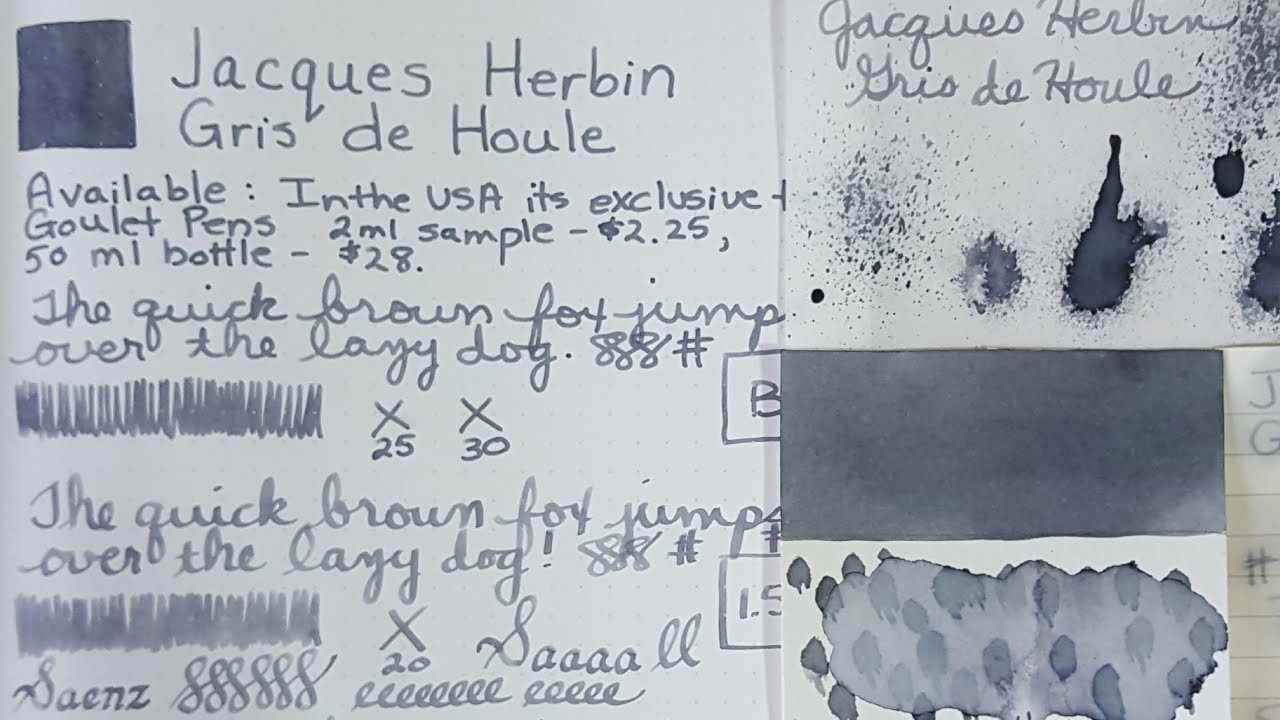 Jacques Herbin
Gris de Houle
Available : In the USA its exclusive t
Goulet Pens 2ml sample - $2.25,
50 ml bottle - $28.
The quick brown fox jump
over the lazy dog. 888 #
X X
25 30
B
The quick brown fox jumps
over the lazy dog! 888 # #
X
20
1.5
Saaaall
Saenz 888888 eeeeeeee eeeee
Jacques Herbin
Gris de Houle
J
G
#